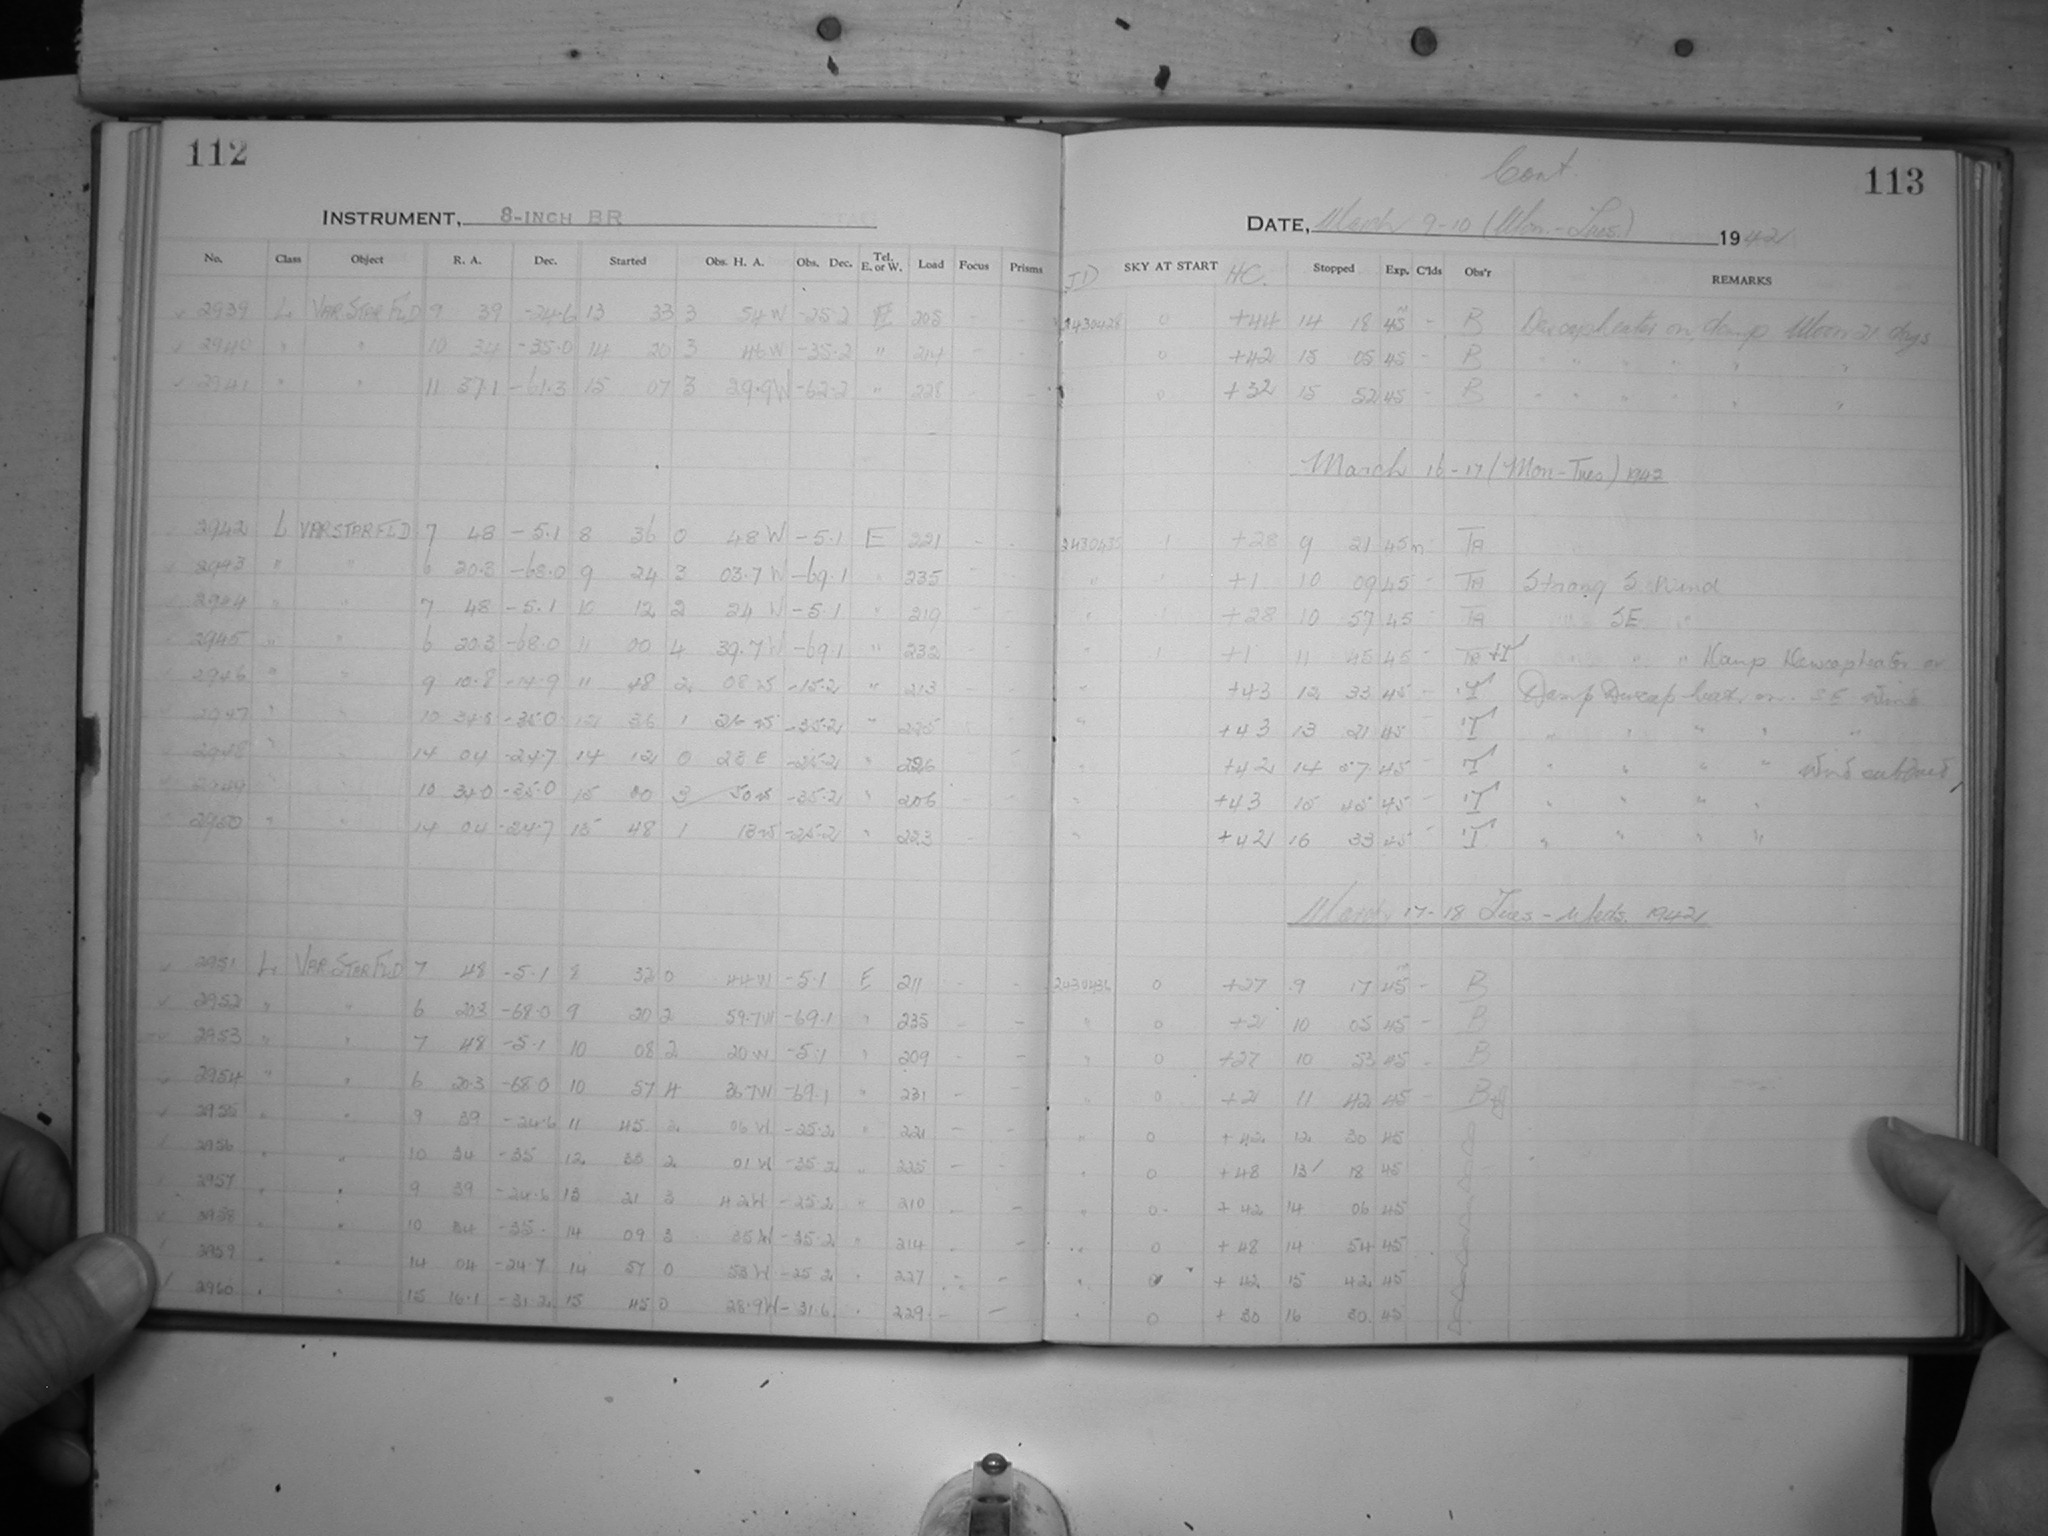 112
INSTRUMENT, 8-INCH BR
No. Class Object R. A. Dec. Started Obs. H. A. Obs. Dec. Tel. E. or W. Load Focus Prisms
2939 L VAR STAR FLD 9 39 -24.6 13 33 3 54 W -25.2 E 205 - -
2940 " " 10 34 -35.0 14 20 3 46 W -35.2 " 214 - -
2941 " " 11 37.1 -61.3 15 07 3 29.9 W -62.2 " 228 - -
2942 L VAR STAR FLD 7 48 -5.1 8 36 0 48 W -5.1 E 221 - -
2943 " " 6 20.3 -68.0 9 24 3 03.7 W -69.1 " 235 - -
2944 " " 7 48 -5.1 10 12 2 24 W -5.1 " 219 - -
2945 " " 6 20.3 -68.0 11 00 4 39.7 W -69.1 " 232 - -
2946 " " 9 10.8 -14.9 11 48 2 08 W -15.2 " 213 - -
2947 " " 10 34.0 -35.0 12 36 1 26 W -35.2 " 225
2948 " " 14 04 -24.7 14 12 0 23 E -25.2 " 226 -
2949 " 10 34.0 -35.0 15 00 3 50 W -35.2 " 206 - -
2950 " " 14 04 -24.7 15 48 1 13 W -25.2 " 223 -
2951 L VAR STAR FLD 7 48 -5.1 8 32 0 44 W -5.1 E 211 - -
2952 " " 6 20.3 -68.0 9 20 2 59.7 W -69.1 " 235 - -
2953 " " 7 48 -5.1 10 08 2 20 W -5.1 " 209 - -
2954 " " 6 20.3 -68.0 10 57 4 36.7 W -69.1 " 231 - -
2955 " " 9 39 -24.6 11 45 2 06 W -25.2 " 221 - -
2956 " " 10 34 -35 12 33 2 01 W -35.2 " 225 - -
2957 " " 9 39 -24.6 13 21 3 42 W -25.2 " 210 - -
2958 " " 10 34 -35. 14 09 3 35 W -35.2 " 214 - -
2959 " " 14 04 -24.7 14 57 0 53 W -25.2 " 227 - -
2960 " " 15 16.1 -31.2 15 45 0 28.9 W -31.6 " 229 - -
Cont.
113
DATE, March 9-10 (Mon.-Tues.) 1942
JD SKY AT START HC. Stopped Exp. C'lds Obs'r REMARKS
2430428 0 +44 14 18 45 - B Dewcapheater on, damp Moon 21 days
0 +42 15 05 45 - B " " " " "
0 +32 15 52 45 - B " " " " "
March 16-17 (Mon-Tues) 1942
2430435 1 +28 9 21 45m TA
" 1 +1 10 09 45 - TA Strong S. Wind
" 1 +28 10 57 45 TA " SE "
" 1 +1 11 45 45 - TA+T " " " Damp Dewcapheater on
" +43 12 33 45 - T Damp Dewcap heat. on. SE wind
" +43 13 21 45 T " " " " "
" +42 14 57 45 T " " " " wind subdued,
" +43 15 45 45 - T " " " "
" +42 16 33 45 - T " " " "
March 17-18 Tues-Weds. 1942
2430436 0 +27 9 17 45 - B
" 0 +2 10 05 45 - B
" 0 +27 10 53 45 - B
" 0 +2 11 42 45 -
" 0 +42 12 30 45
0 +48 13 18 45
" 0 +42 14 06 45
" 0 +48 14 54 45
" 0 +42 15 42 45
" 0 +30 16 30 45